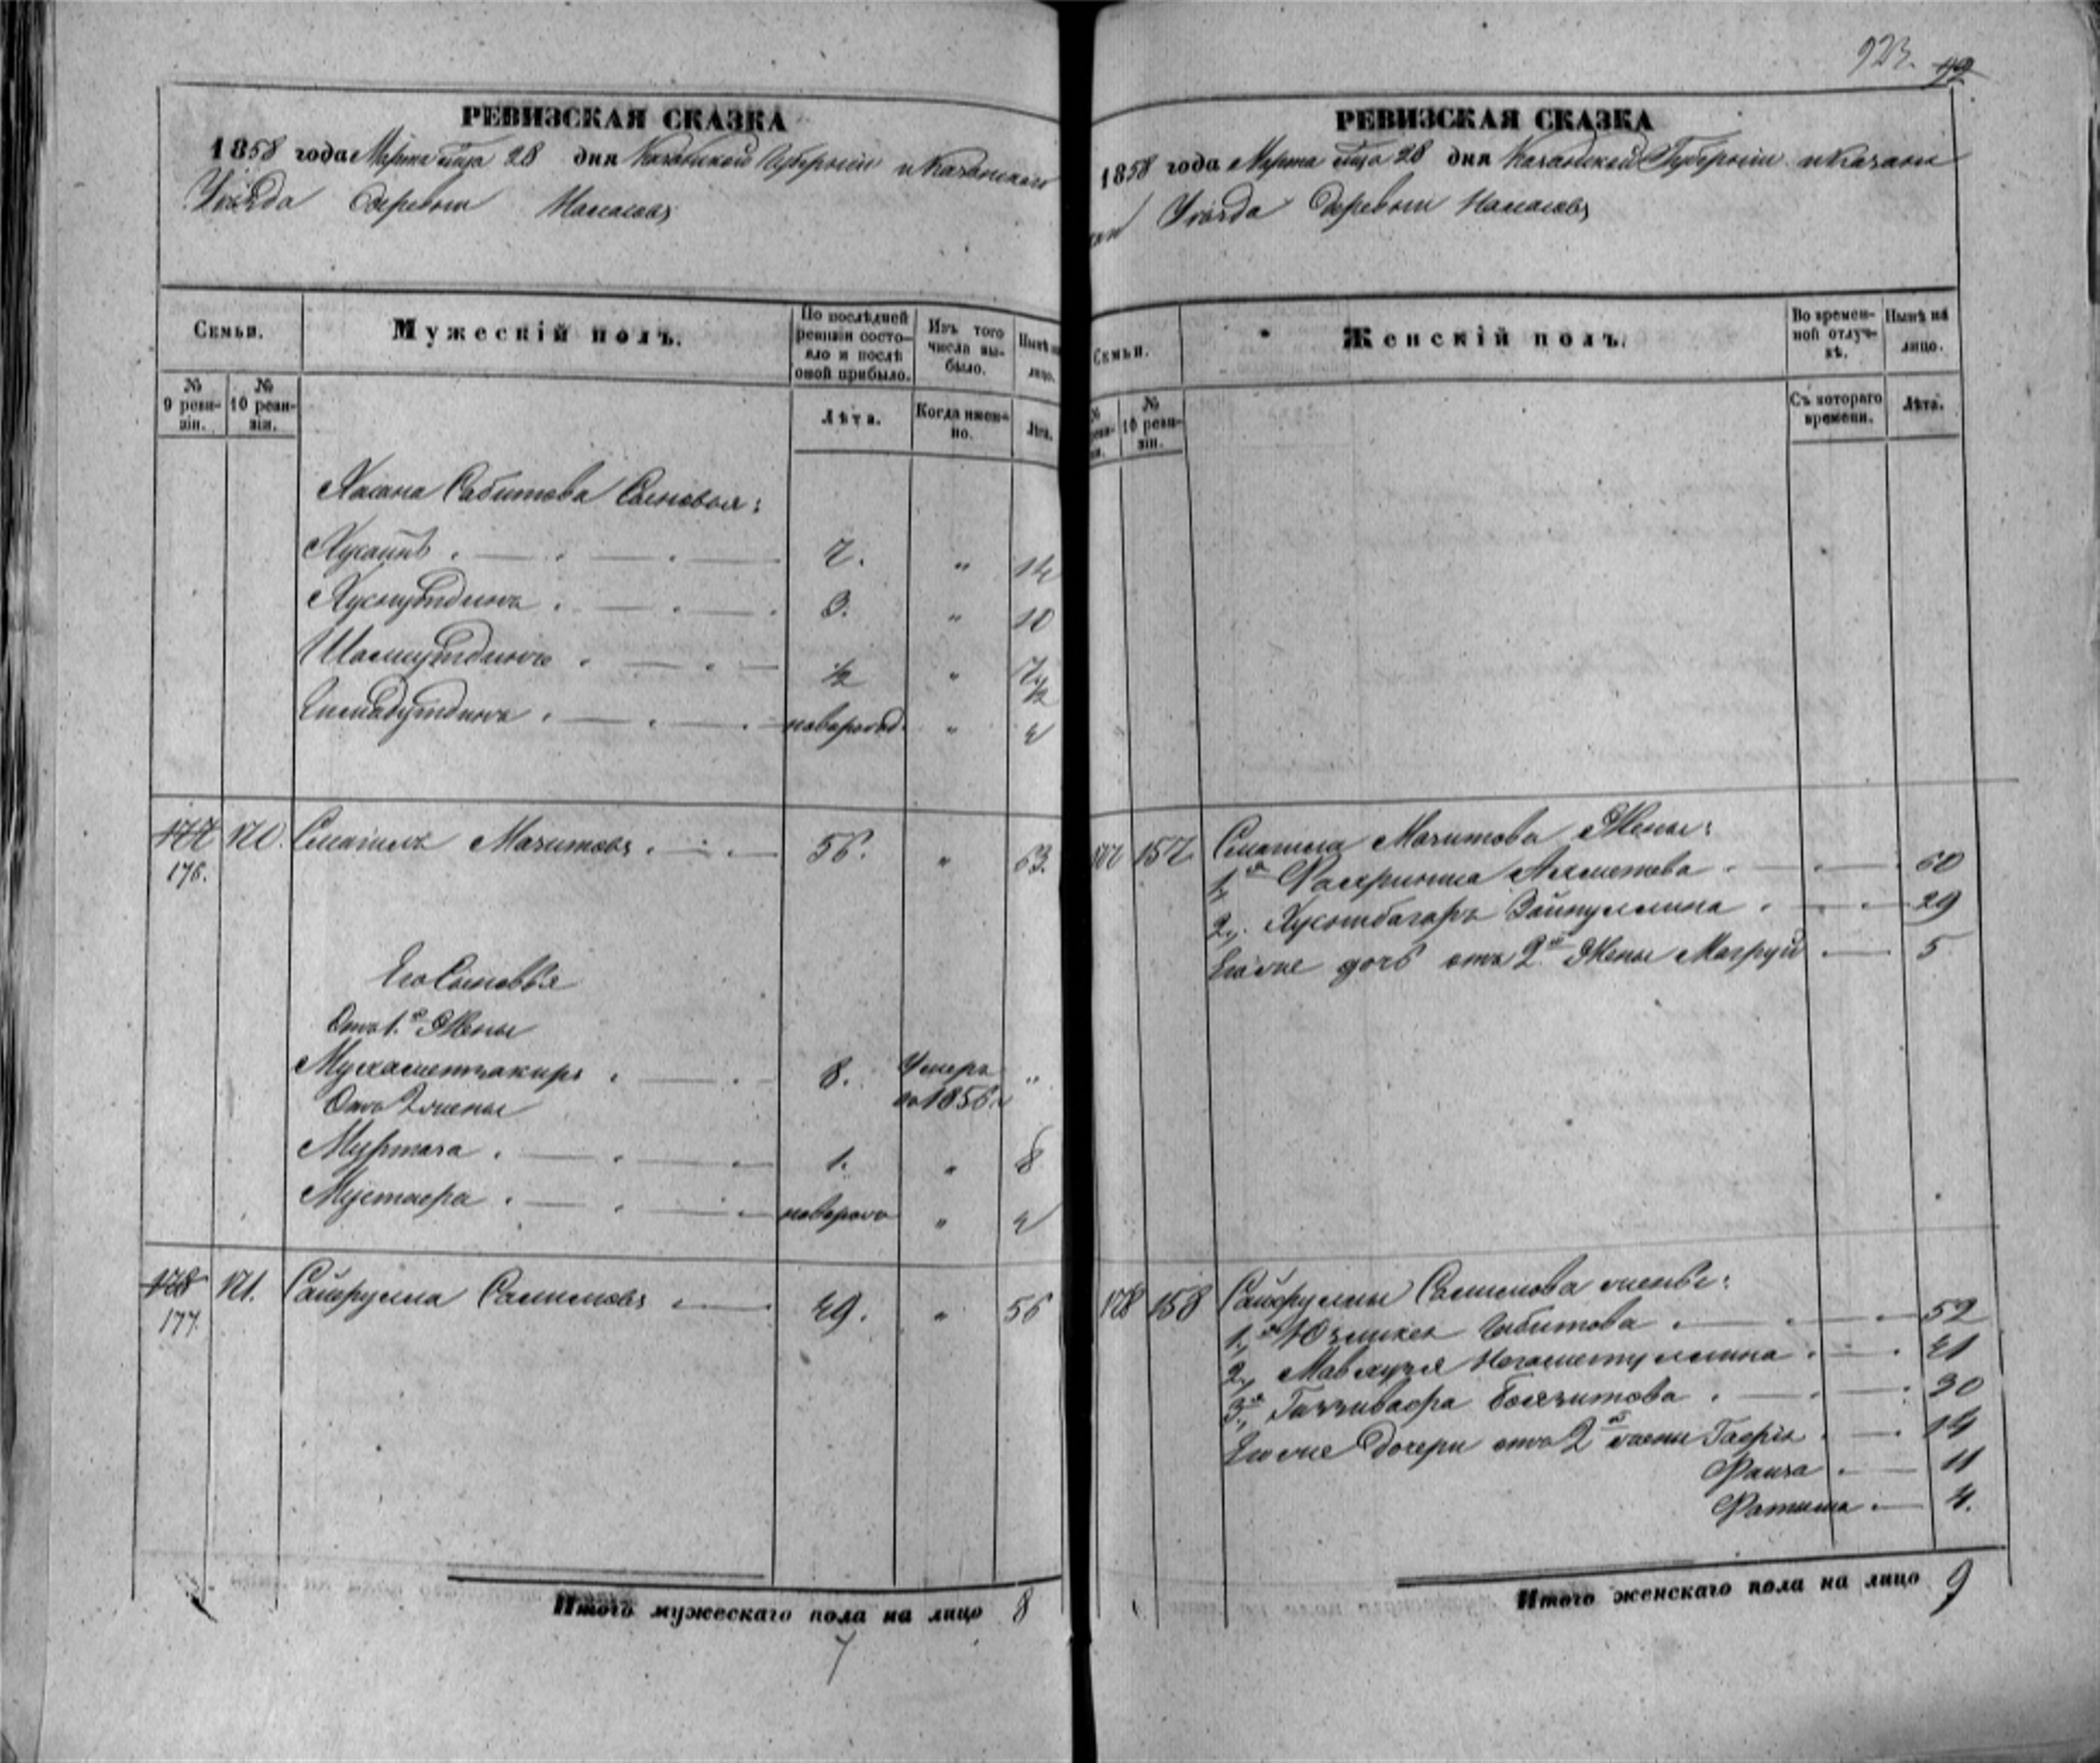 923. 92
РЕВИЗСКАЯ СКАЗКА
1858 года Марта мца 28 дня Казанской Губернии и Казанского
Уѣзда деревни
Семьи.
Мужескій полъ.
По послѣдней ревизіи состояло и послѣ оной прибыло.
Изъ того числа выбыло.
Нынѣ на лицо.
№ 9 ревизіи.
№ 10 ревизіи.
Лѣта.
Когда именно.
Лѣта.
Хасана Сабитова Сыновья:
Хусаинъ . — . — . — 7. " 14
Хуснутдинъ . — . — . 3. " 10
Шамсутдинъ . — . — ½ " 7½
новорожд. "
177 176. 170. Смагилъ Мазитовъ . — . — 56. " 63.
Его Сыновья
Отъ 1.й Жены
Мухаметзакиръ . — . 8. Умеръ въ 1856 "
Отъ 2 жены
Муртаза . — . — . — 1. " 8
Мустафа . — . — . — новорож "
178 177. 171. Сайфулла Салимовъ . — 49. " 56
Итого мужескаго пола на лицо 8
7
РЕВИЗСКАЯ СКАЗКА
1858 года Марта мца 28 дня Казанской Губерніи и Казанс
кого Уѣзда деревни
Семьи.
Женскій полъ.
Во временной отлучкѣ.
Нынѣ на лицо.
№ ревизіи.
№ 10 ревизіи.
Съ котораго времени.
Лѣта.
177 157 Смагила Мазитова Жены:
1я Ахметова . — . — 60
2я. Зайнуллина . — . — 29
Его же дочь отъ 2й Жены Магруй . — 5
178 158 Сайфуллы Салимова жены:
1я Габитова . — . — . 52
2я Нагаметуллина . — . 41
3я Баязитова . — . — . 30
Его же дочери отъ 2й жены . — . 14
Фаиза . — 11
Фатима . — 4.
Итого женскаго пола на лицо 9